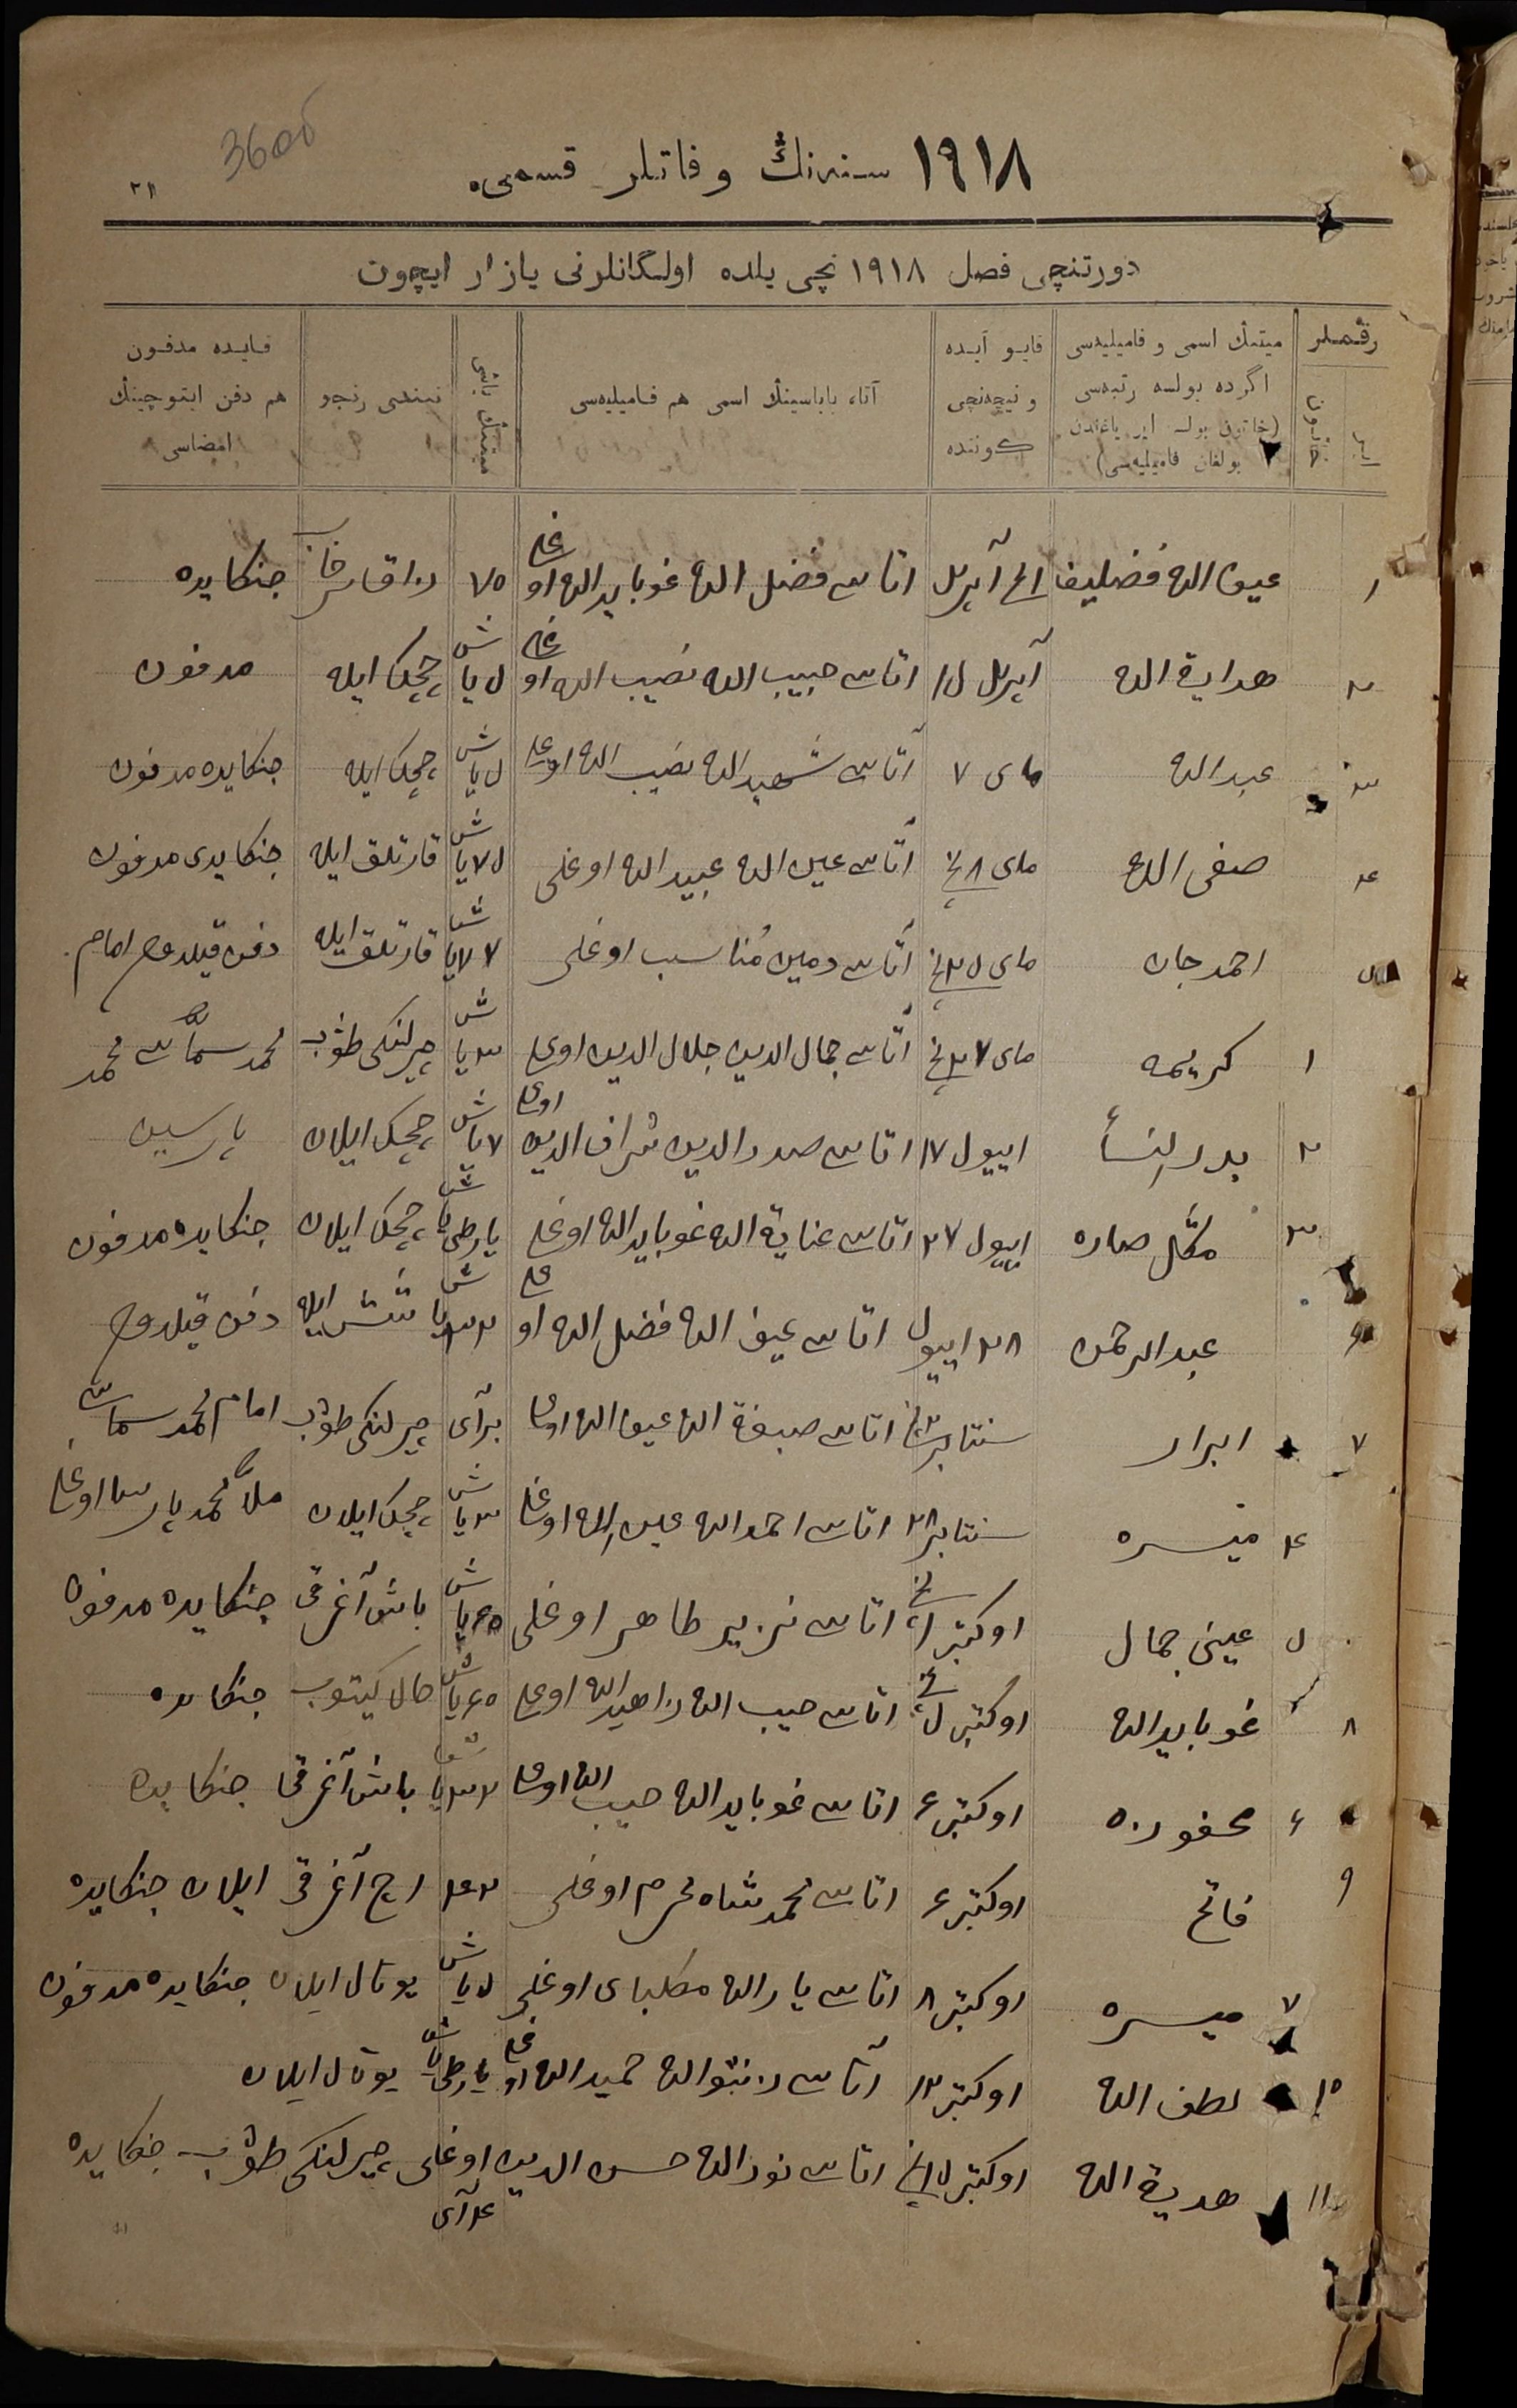 360б
١٩١٨ سنەنڭ وفاتلر قسمی
دورتنچی فصل ١٩١٨ نچی یلده اولگانلرنی یازار ایچون
رقملر
ایرلر
خاتون
میتنڭ اسمی و فامیلیەسی اگرده بولسه رتبەسی (خاتون بولسه ایر یاغندن بولغان فامیلیەسی)
قایو آیده و نیچەنچی كوننده
آتا، باباسینڭ اسمی هم فامیلیەسی
میتنڭ یاشی
نیندی رنجو
قایده مدفون هم دفن ایتوچینڭ امضاسی
١ عین الله فضلیف آپریل اتاسی فضل الله غوبایدالله اوغلی ٧٥ جنكایده
٢ هدایة الله آپریل اتاسی حبیب الله نصیب الله اوغلی ٥ یاش چچك ایله مدفون
٣ عبدالله مای ٧ آتاسی شهیدالله نصیب الله اوغلی ٥ یاش چچك ایله جنكایده مدفون
٤ صفی الله مای ٨ نچی آتاسی عین الله عبیدالله اوغلی ٧٥ یاش قارتلق ایله جنكایدی مدفون
٥ احمدجان مای ٢٥ نچی آتاسی مناسب اوغلی ٧٧ یاش قارتلق ایله دفن قیلدوم امام
١ كریمه مای ٢٧ نچی آتاسی جمال الدین جلال الدین اوغلی ٣ یاش چیرلنكی طوٮ محمد
٢ بدرالنسأ اییول ١٧ اتاسی صدرالدین شراف الدین اوغلی ٧ یاش چچك ایلان
٣ صاره اییول ٢٧ اتاسی عنایة الله غوبایدالله اوغلی یارطی یاش چچك ایلان جنكایده مدفون
٦ عبدالرحمن ٢٨ اییول اتاسی عین الله فضل الله اوغلی ٣٢ یاش ایله دفن قیلدوم
٧ ابرار سنتابر اتاسی صبغة الله عین الله اوغلی بر آی چیرلنكی طوٮ امام محمد
٤ میسره سنتابر ٢٨ اتاسی احمدالله عین الله اوغلی ٣ یاش چچك ایلان ملا محمد اوغلی
٥ عینی جمال اوكتبر ١ نچی اتاسی نزیر طاهر اوغلی ٤٥ یاش باش آغرقی جنكایده مدفون
٨ غوبایدالله اوكتبر ٥ نچی اتاسی حبیب الله زاهیدالله اوغلی ٦٥ یاش حال كیتوب جنكایده
٦ محفوزه اوكتبر ٦ اتاسی غوبایدالله حبیب الله اوغلی ٣٢ یاش باش آغرقی جنكایده
٩ فاتح اوكتبر ٦ اتاسی محمدشاه محرم اوغلی ٤٢ اچ آغرقی ایلان جنكایده
٧ میسره اوكتبر ٨ اتاسی یارالله اوغلی ٥ یاش یوتال ایلان جنكایده مدفون
١٠ لطف الله اوكتبر ١٢ آتاسی حمیدالله اوغلی یارطی یاش یوتال ایلان
١١ هدیة الله اوكتبر ١٥ نچی اتاسی نورالله حسن الدین اوغلی ٤ آی چیرلنكی طوٮ جنكایده